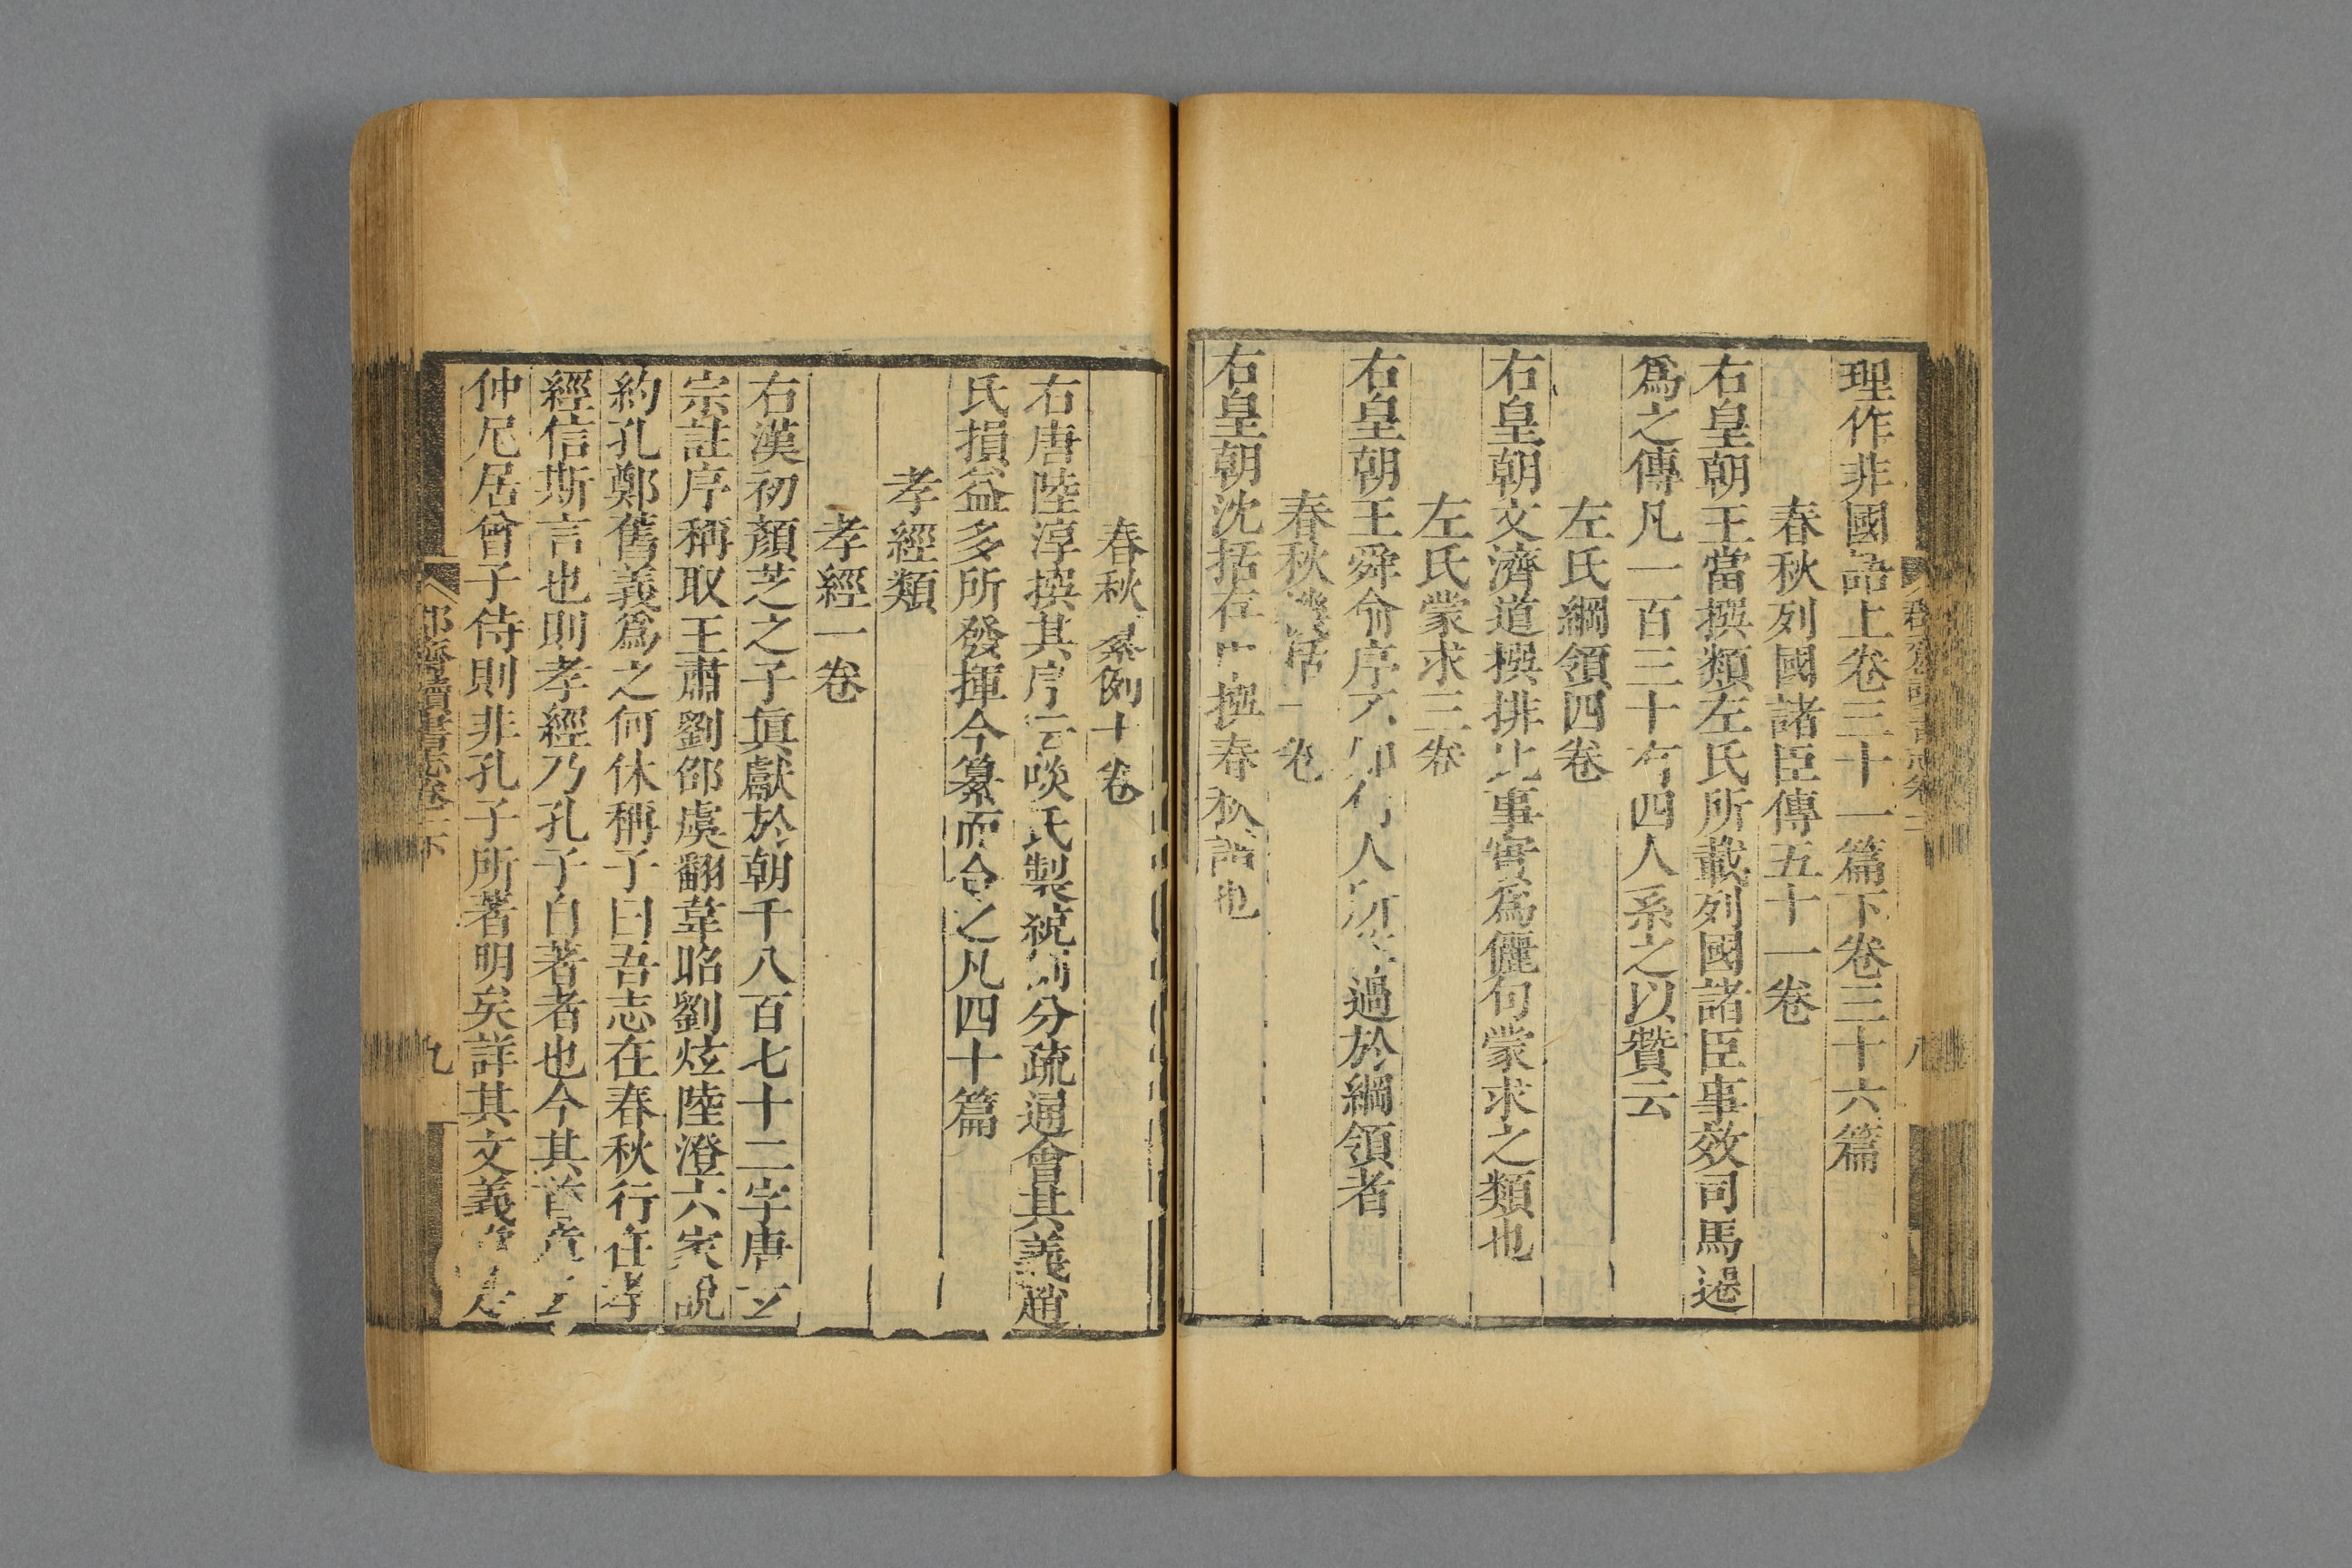 理作非國語上卷三十一篇下卷三十六篇
春秋列國諸臣傳五十一卷
右皇朝王當撰類左氏所載列國諸臣事效司馬遷
爲之傳凡一百三十有四人系之以贊云
左氏綱領四卷
右皇朝文濟道撰排比事實爲儷句蒙求之類也
左氏蒙求三卷
右皇朝王舜俞序 人 過於綱領者
春秋機括一卷
右皇朝沈括存中撰春秋譜也
春秋纂例十卷
右唐陸淳撰其序云啖氏製統例分疏通會其義趙
氏損益多所發揮今纂而合之凡四十篇
孝經類
孝經一卷
右漢初顏芝之子貞獻於朝千八百七十二字唐玄
宗註序稱取王肅劉邵虞翻韋昭劉炫陸澄六家說
約孔鄭舊義爲之何休稱子曰吾志在春秋行在孝
經信斯言也則孝經乃孔子自著者也今其首章云
仲尼居曾子侍則非孔子所著明矣詳其文義
郡齋讀書志卷一下
九
八